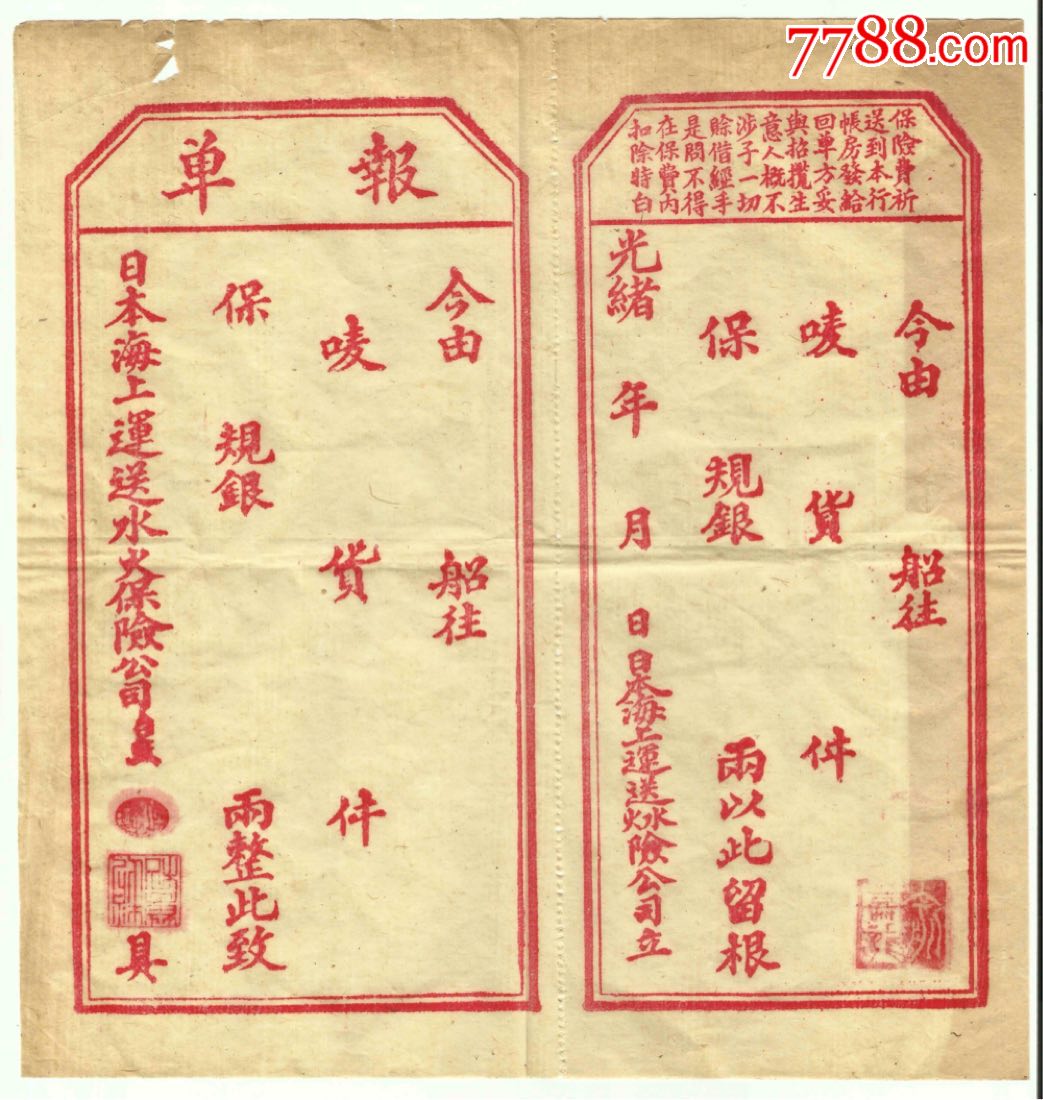 7788.com
保險費祈
送到本行
帳房發給
回单方妥
與招攬生
意人概不
涉子一切
賒借經手
是問不得
在保費内
扣除時白
今由 船往
唛 貨 件
保 規銀 兩以此留根
光緒 年 月 日 日本海上運送水火險公司立
報单
今由 船往
唛 貨 件
保 規銀 兩整此致
日本海上運送水火保險公司 具